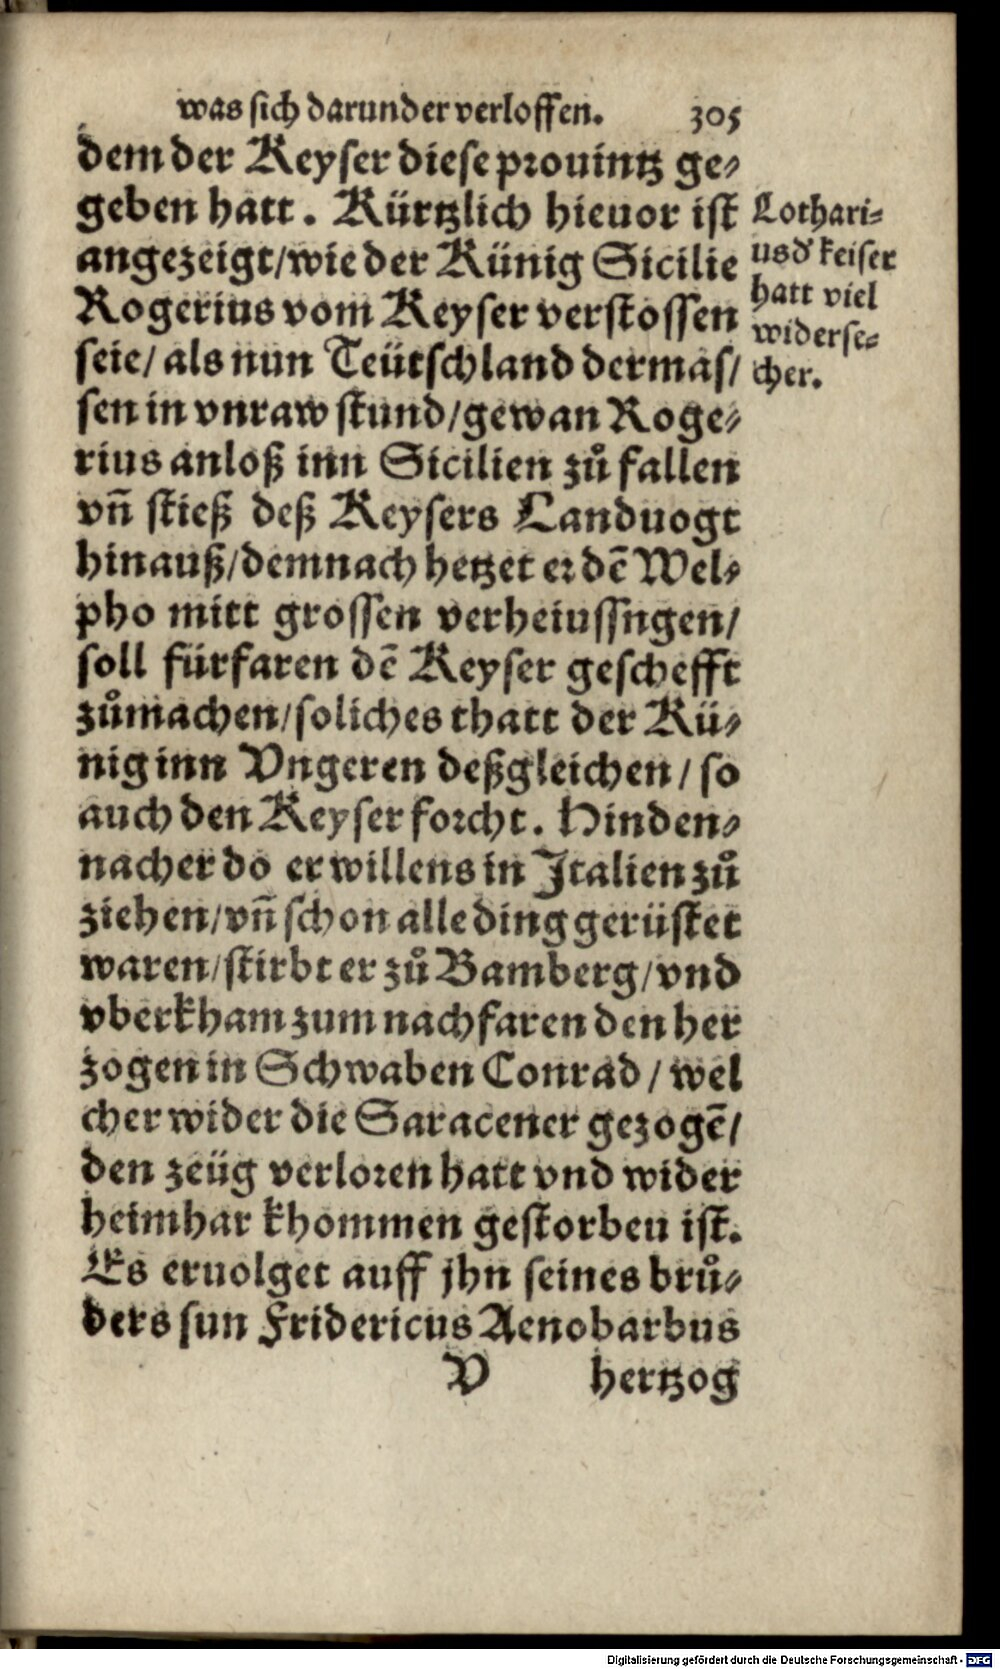 was sich darunder verloffen. 305
dem der Keyser diese prouintz ge-
geben hatt. Kürtzlich hieuor ist
angezeigt/wie der Künig Sicilie
Rogerius vom Keyser verstossen
seie/ als nun Teütschland dermas/
sen in vnraw stund/gewan Roge-
rius anloß inn Sicilien zů fallen
vñ stieß deß Keysers Landuogt
hinauß/demnach hetzet er dē Wel-
pho mitt grossen verheiussngen/
soll fürfaren dē Keyser geschefft
zůmachen/soliches thatt der Kü-
nig inn Vngeren deßgleichen/ so
auch den Keyser forcht. Hinden-
nacher do er willens in Italien zů
ziehen/vñ schon alle ding gerüstet
waren/stirbt er zů Bamberg/vnd
vberkham zum nachfaren den her
zogen in Schwaben Conrad/ wel
cher wider die Saracener gezogē/
den zeüg verloren hatt vnd wider
heimhar khommen gestorben ist.
Es eruolget auff jhn seines brů-
ders sun Fridericus Aenobarbus
V hertzog
Lothari-
us dʼ keiser
hatt viel
widerse-
cher.
Digitalisierung gefördert durch die Deutsche Forschungsgemeinschaft - DFG